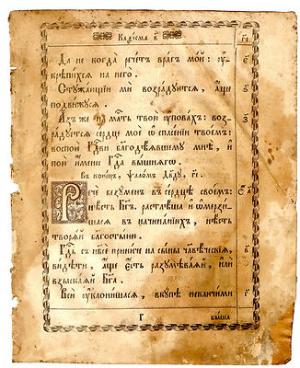 Каѳісма в҃
Да не когда̀ рече́тъ вра́гъ мо́й: ᲂу҆крѣпи́хсѧ на него̀.
Стꙋжа́ющїи мѝ возра́дꙋютсѧ, а҆́ще подви́жꙋсѧ.
А҆́зъ же на мл҃ть твою̀ ᲂу҆пова́хъ: возра́дꙋетсѧ се́рдце моѐ ѡ҆ спасе́нїи твое́мъ:
воспою̀ гдⷭ҇ви благодѣ́ѧвшемꙋ мнѣ̀, и҆
пою̀ и҆́мени гдⷭ҇а вы́шнѧгѡ.
Въ коне́цъ, ѱало́мъ дв҃дꙋ, г҃і.
Речѐ безꙋ́менъ въ се́рдцѣ свое́мъ:
нѣ́сть бг҃ъ. растлѣ́ша и҆ ѡ҆мерзи́шасѧ въ начина́нїихъ, нѣ́сть
творѧ́й благосты́ню.
Гдⷭ҇ь съ нб҃сѐ прини́че на сы́ны чл҃вѣ́ческїѧ,
ви́дѣти, а҆́ще є҆́сть разꙋмѣва́ѧй, и҆лѝ
взыска́ѧй бг҃а.
Всѝ ᲂу҆клони́шасѧ, вкꙋ́пѣ неключи́ми